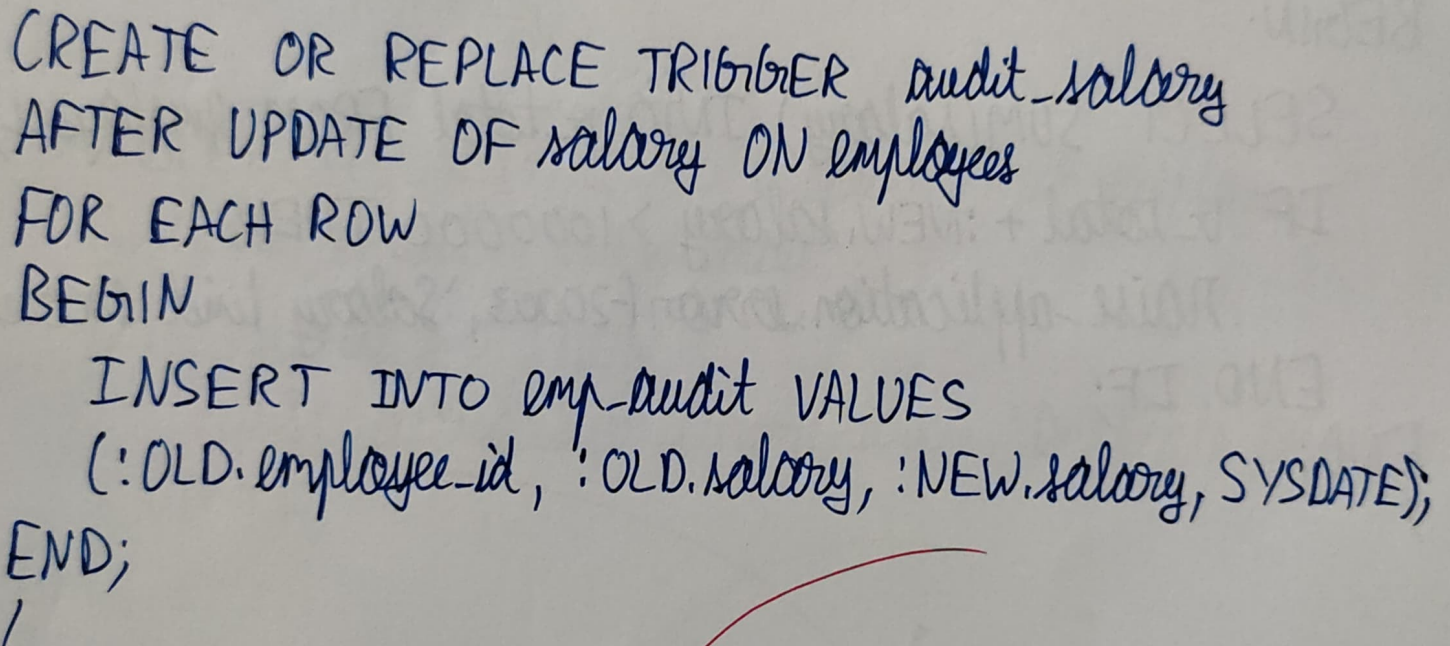 CREATE OR REPLACE TRIGGER audit_salary
AFTER UPDATE OF salary ON employees
FOR EACH ROW
BEGIN
INSERT INTO emp_audit VALUES
(:OLD.employee_id, :OLD.salary, :NEW.salary, SYSDATE);
END;
/